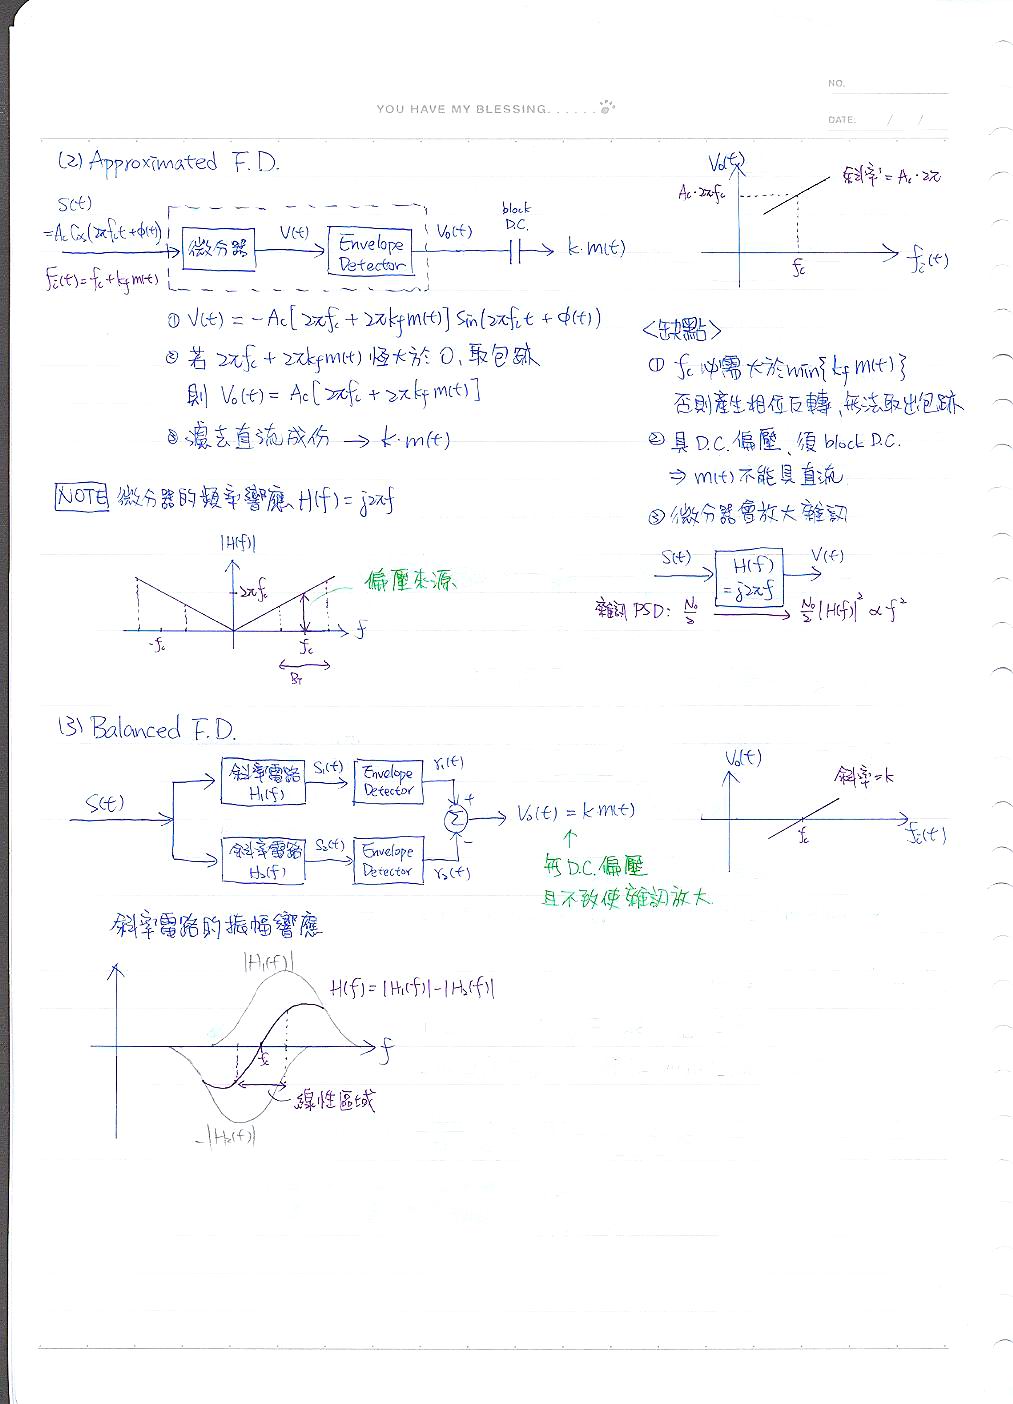 NO.
YOU HAVE MY BLESSING......
DATE: / /
(2) Approximated F.D.
S(t)
=Ac Cos(2πfct+φ(t))
fi(t)=fc+kfm(t)
微分器
V(t)
Envelope
Detector
Vo(t)
block
D.C.
k·m(t)
Vo(t)
Ac·2πfc
斜率=Ac·2π
fc
fi(t)
① V(t) = -Ac[2πfc + 2πkfm(t)] Sin(2πfct + φ(t))
② 若 2πfc + 2πkfm(t) 恆大於 0, 取包跡
則 Vo(t) = Ac[2πfc + 2πkfm(t)]
③ 濾去直流成份 → k·m(t)
<缺點>
① fc 必需大於min{kfm(t)}
否則產生相位反轉、無法取出包跡
② 具D.C.偏壓、須block D.C.
⇒ m(t)不能具直流
③ 微分器會放大雜訊
S(t)
H(f)
=j2πf
V(t)
雜訊 PSD: No/2 → No/2|H(f)|² ∝ f²
NOTE 微分器的頻率響應、H(f) = j2πf
|H(f)|
2πfc
偏壓來源
-fc
fc
f
BT
(3) Balanced F.D.
S(t)
斜率電路
H1(f)
S1(t)
Envelope
Detector
r1(t)
+
Σ
-
斜率電路
H2(f)
S2(t)
Envelope
Detector
r2(t)
Vo(t) = k·m(t)
↑
無D.C.偏壓
且不致使雜訊放大.
Vo(t)
斜率=k
fc
fi(t)
斜率電路的振幅響應
|H1(f)|
H(f)=|H1(f)|-|H2(f)|
fc
f
線性區域
-|H2(f)|